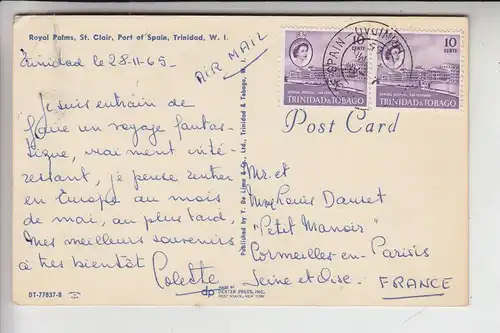 Royal Palms, St. Clair, Port of Spain, Trinidad, W. I.
Trinidad le 28-11-65-
AIR MAIL
Je suis entrain de
faire un voyage fantas-
tique, vraiment inté-
ressant, je pense rentrer
en Europe au mois
de mai, au plus tard,
Mes meilleurs souvenirs
à très bientôt Colette
DT-77837-B
Published by Y. De Lima & Co., Ltd., Trinidad & Tobago, W. I.
dp
DEXTER PRESS, INC.
WEST NYACK, NEW YORK
10
CENTS
TRINIDAD & TOBAGO
10
CENTS
TRINIDAD & TOBAGO
Post Card
Mr. et
Mme Louis Dauset
"Petit Manoir"
Cormeilles-en-Parisis
Seine et Oise.
FRANCE